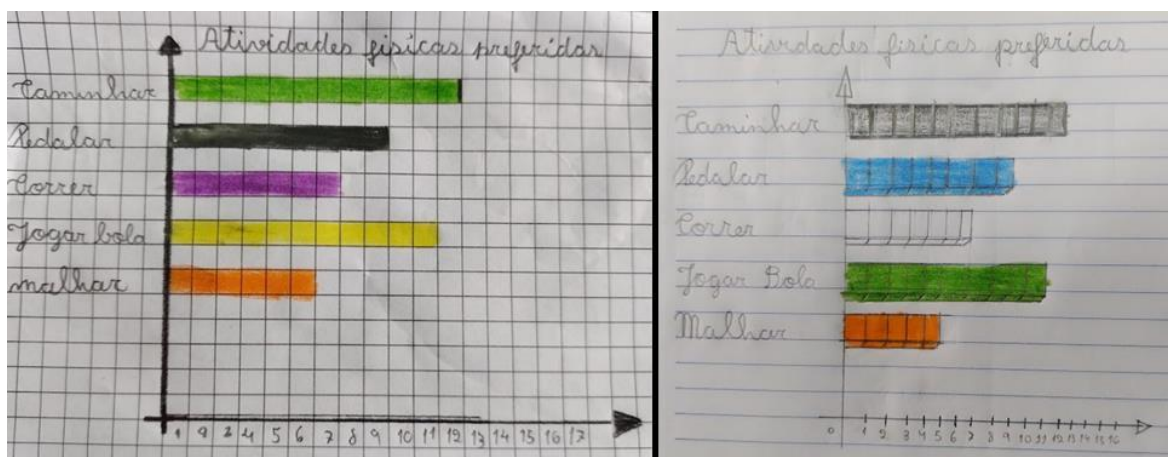 Atividades fisicas preferidas
Caminhar
Pedalar
Correr
Jogar bola
malhar
1 2 3 4 5 6 7 8 9 10 11 12 13 14 15 16 17
Atividades fisicas preferidas
Caminhar
Pedalar
Correr
Jogar Bola
Malhar
0 1 2 3 4 5 6 7 8 9 10 11 12 13 14 15 16